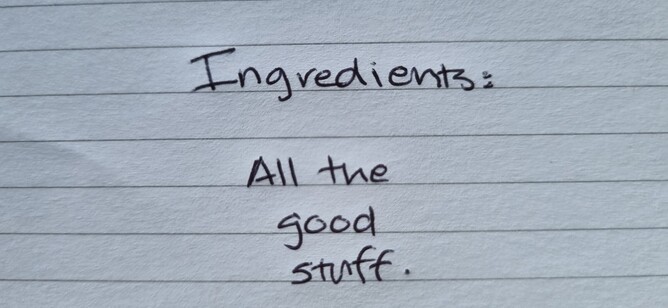 Ingredients:
All the
good
stuff.